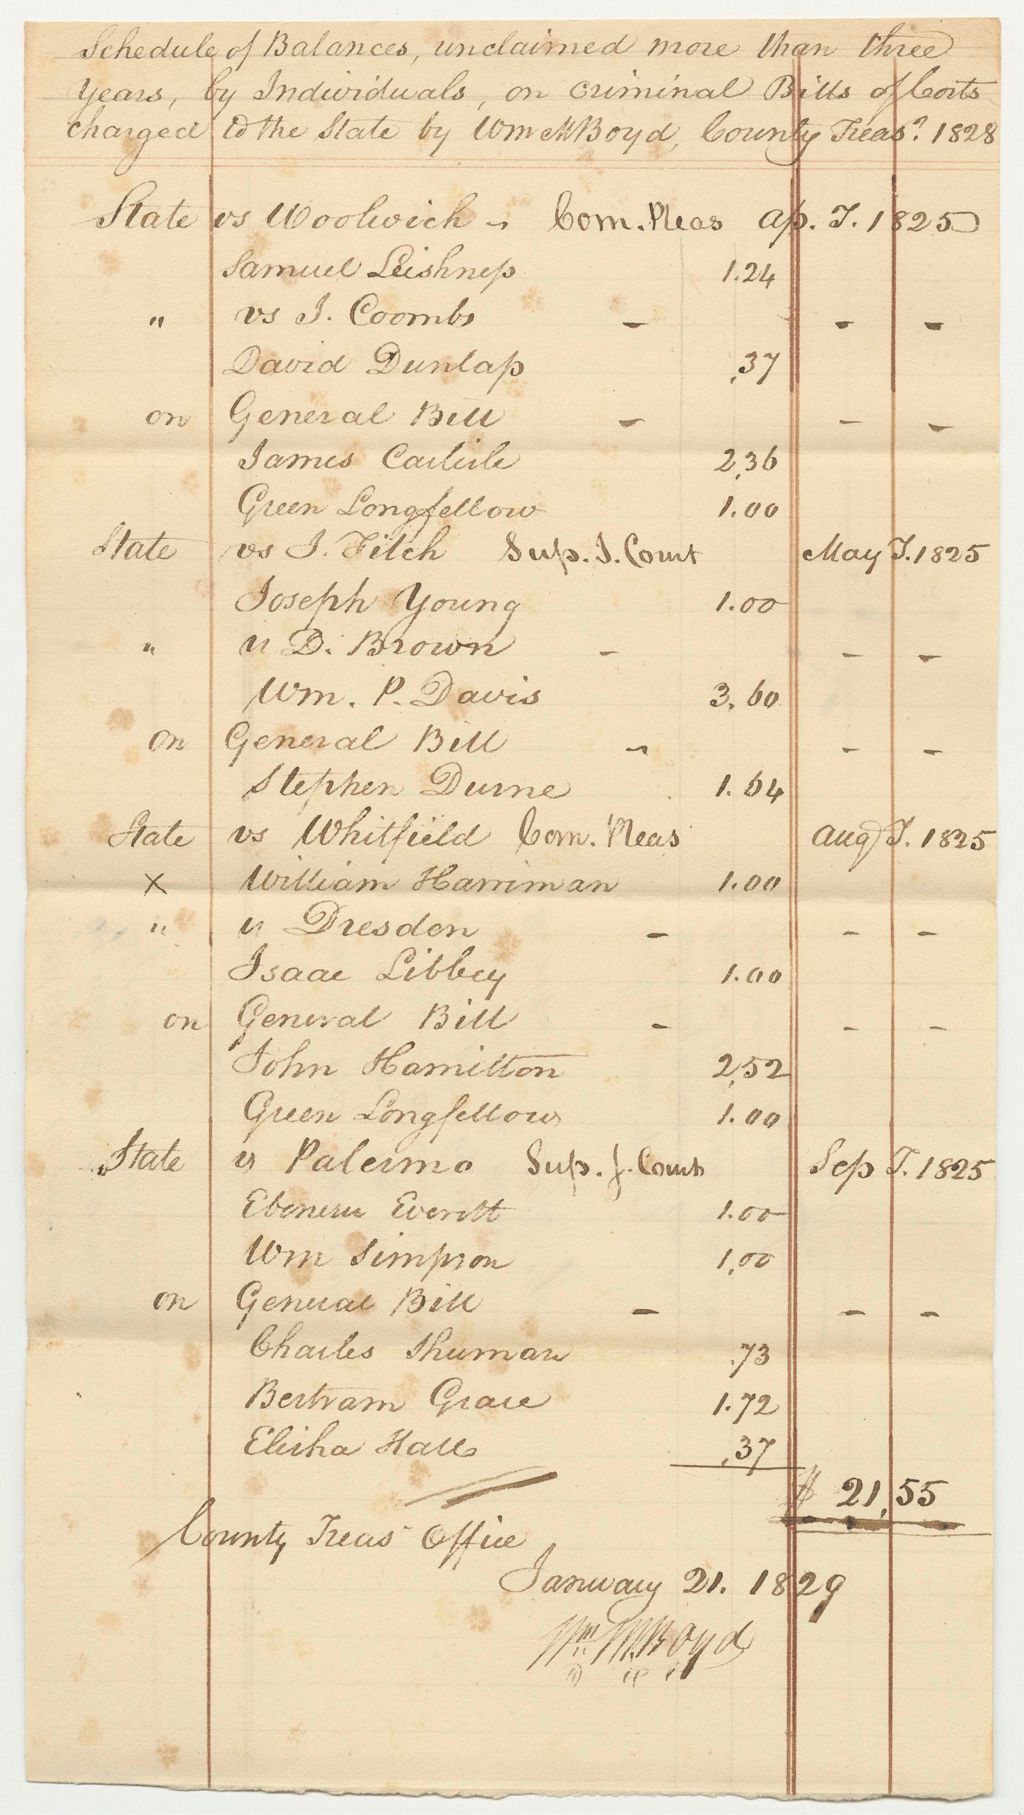 Schedule of Balances, unclaimed more than three
Years, by Individuals, on criminal Bills of Costs
charged to the State by Wm M Boyd, County Treasr. 1828
State vs Woolwich - Com. Pleas Ap. T. 1825
Samuel 1.24
" vs J. Coombs - - -
David Dunlap .37
on General Bill - - -
James Carlisle 2.36
Green Longfellow 1.00
State vs J. Fitch Sup. J. Court May T. 1825
Joseph Young 1.00
" " D. Brown - - -
Wm. P. Davis 3.60
on General Bill - - -
Stephen 1.64
State vs Whitfield Com. Pleas Aug T. 1825
X William Harriman 1.00
" " Dresden - - -
Isaac Libbey 1.00
on General Bill - - -
John Hamilton 2.52
Green Longfellow 1.00
State vs Palermo Sup. J. Court Sep T. 1825
Ebenezer Everett 1.00
Wm Simpson 1.00
on General Bill - - -
Charles Shuman .73
Bertram Grace 1.72
Elisha Hall .37
$ 21,55
County Treas Office
January 21. 1829
Wm M Boyd